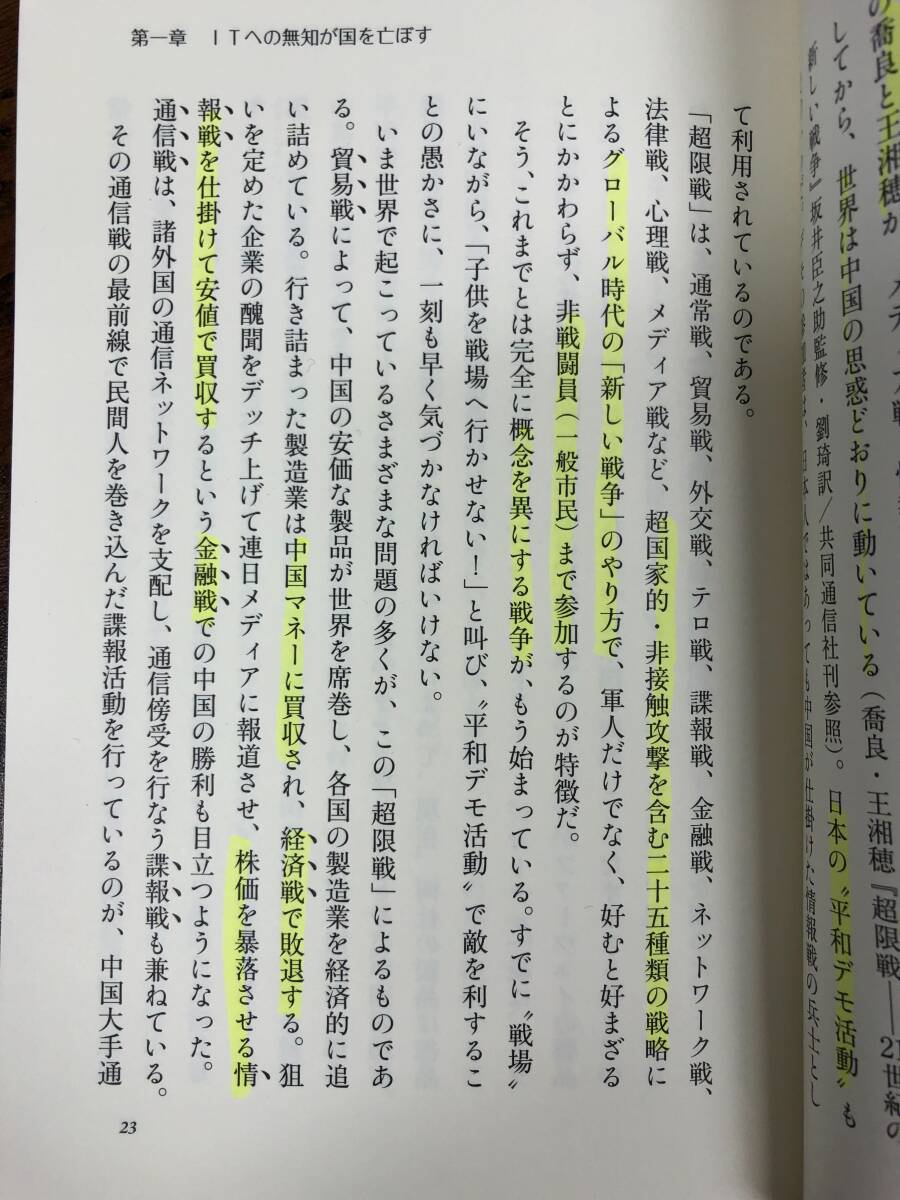 の喬良と王湘穂が
してから、世界は中国の思惑どおりに動いている（喬良・王湘穂『超限戦――21世紀の
新しい戦争』坂井臣之助監修・劉琦訳／共同通信社刊参照）。日本の〝平和デモ活動〟も
日本人ではあっても中国が仕掛けた情報戦の兵士とし
第一章　ＩＴへの無知が国を亡ぼす
て利用されているのである。
「超限戦」は、通常戦、貿易戦、外交戦、テロ戦、諜報戦、金融戦、ネットワーク戦、
法律戦、心理戦、メディア戦など、超国家的・非接触攻撃を含む二十五種類の戦略に
よるグローバル時代の「新しい戦争」のやり方で、軍人だけでなく、好むと好まざる
とにかかわらず、非戦闘員（一般市民）まで参加するのが特徴だ。
そう、これまでとは完全に概念を異にする戦争が、もう始まっている。すでに〝戦場〟
にいながら、「子供を戦場へ行かせない！」と叫び、〝平和デモ活動〟で敵を利するこ
との愚かさに、一刻も早く気づかなければいけない。
いま世界で起こっているさまざまな問題の多くが、この「超限戦」によるものであ
る。貿易戦によって、中国の安価な製品が世界を席巻し、各国の製造業を経済的に追
い詰めている。行き詰まった製造業は中国マネーに買収され、経済戦で敗退する。狙
いを定めた企業の醜聞をデッチ上げて連日メディアに報道させ、株価を暴落させる情
報戦を仕掛けて安値で買収するという金融戦での中国の勝利も目立つようになった。
通信戦は、諸外国の通信ネットワークを支配し、通信傍受を行なう諜報戦も兼ねている。
その通信戦の最前線で民間人を巻き込んだ諜報活動を行っているのが、中国大手通
23